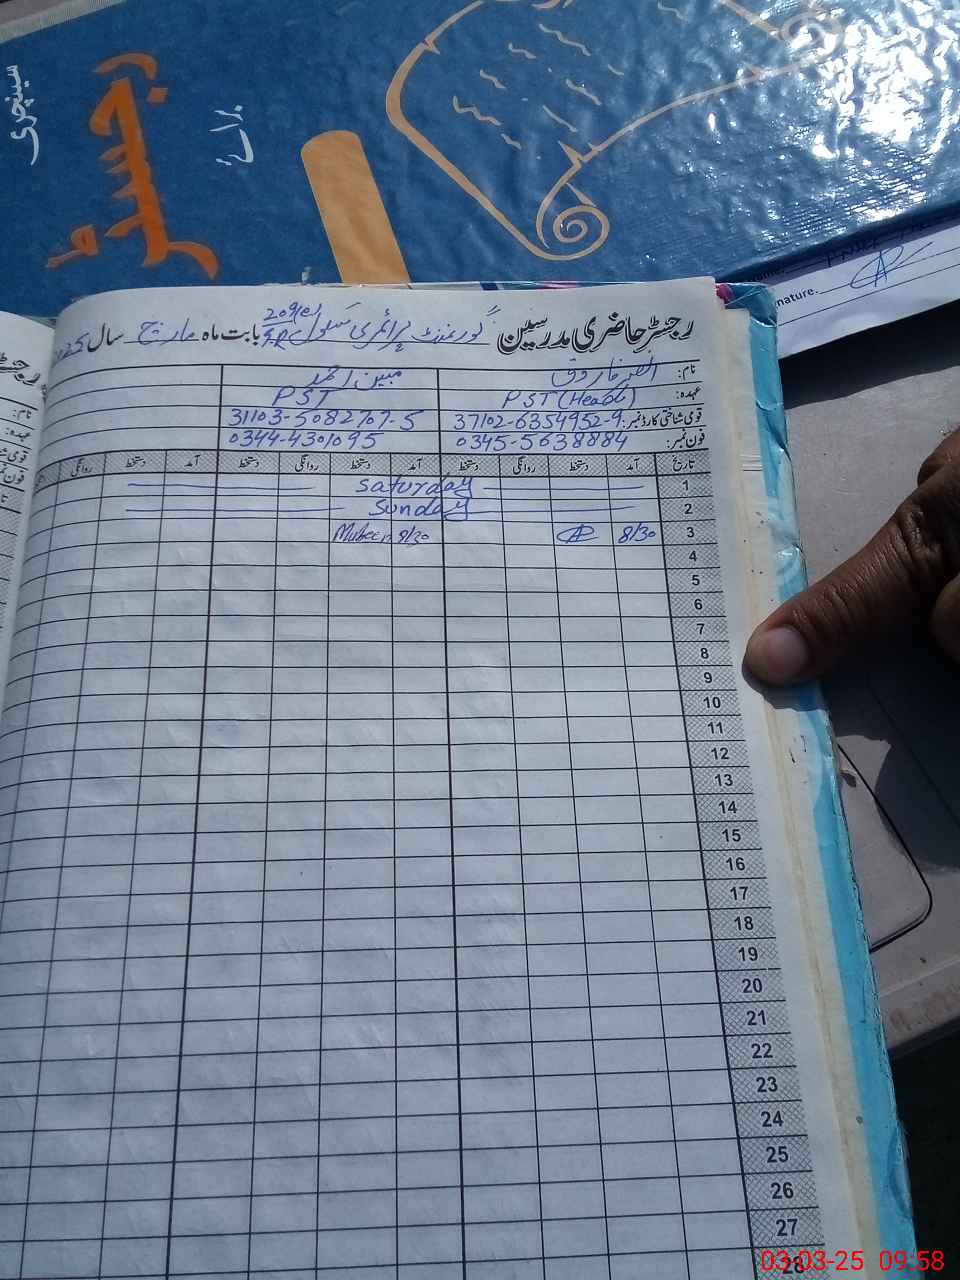 سینچری
رجسٹر
برائے
nature.
رجسٹر حاضری مدرسین گورنمنٹ پرائمری سکول 209/ بابت ماہ مارچ سال
نام: فاروق مبین احمد
عہدہ: PST (Head) PST
قومی شناختی کارڈ نمبر: 37102-6354952-9 31103-5082707-5
فون نمبر: 0345-5638884 0344-4301095
تاریخ آمد دستخط روانگی دستخط آمد دستخط روانگی دستخط آمد دستخط روانگی
1 Saturday
2 Sunday
3 8/30 8/30 Mubeen
4
5
6
7
8
9
10
11
12
13
14
15
16
17
18
19
20
21
22
23
24
25
26
27
28
03-03-25 09:58